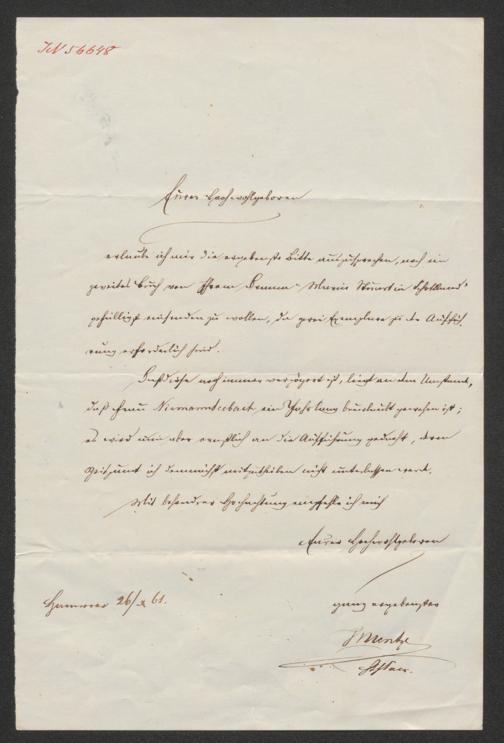 IN 56648
Euer Hochwohlgeboren
erlaube ich mir die ergebenste Bitte auszusprechen, noch ein
zweites Buch von Ihrem Drama „Maria Stuart in Schottland“
gefälligst einsenden zu wollen, da zwei Exemplare zu der Auffüh-
rung erforderlich sind.
Daß diese noch immer verzögert ist, liegt an dem Umstand,
daß Frau Niemann-Seebach ein Jahr lang beurlaubt gewesen ist;
es wird nun aber ernstlich an die Aufführung gedacht, deren
Zeitpunkt ich demnächst mitzutheilen nicht unterlassen werde.
Mit besonderer Hochachtung empfehle ich mich
Eurer Hochwohlgeboren
Hannover 26/X 61.
ganz ergebenster